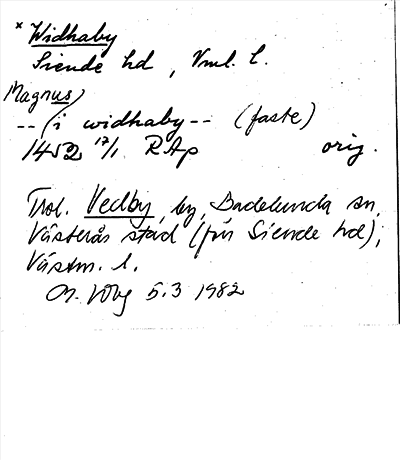 × Widhaby
Siende hd, Vml. l.
Magnus
-- i widhaby -- (faste)
1452 17/1 RAp orig.
Trol. Vedby, by, Badelunda sn,
Västerås stad (förr Siende hd),
Västm. l.
5.3 1982